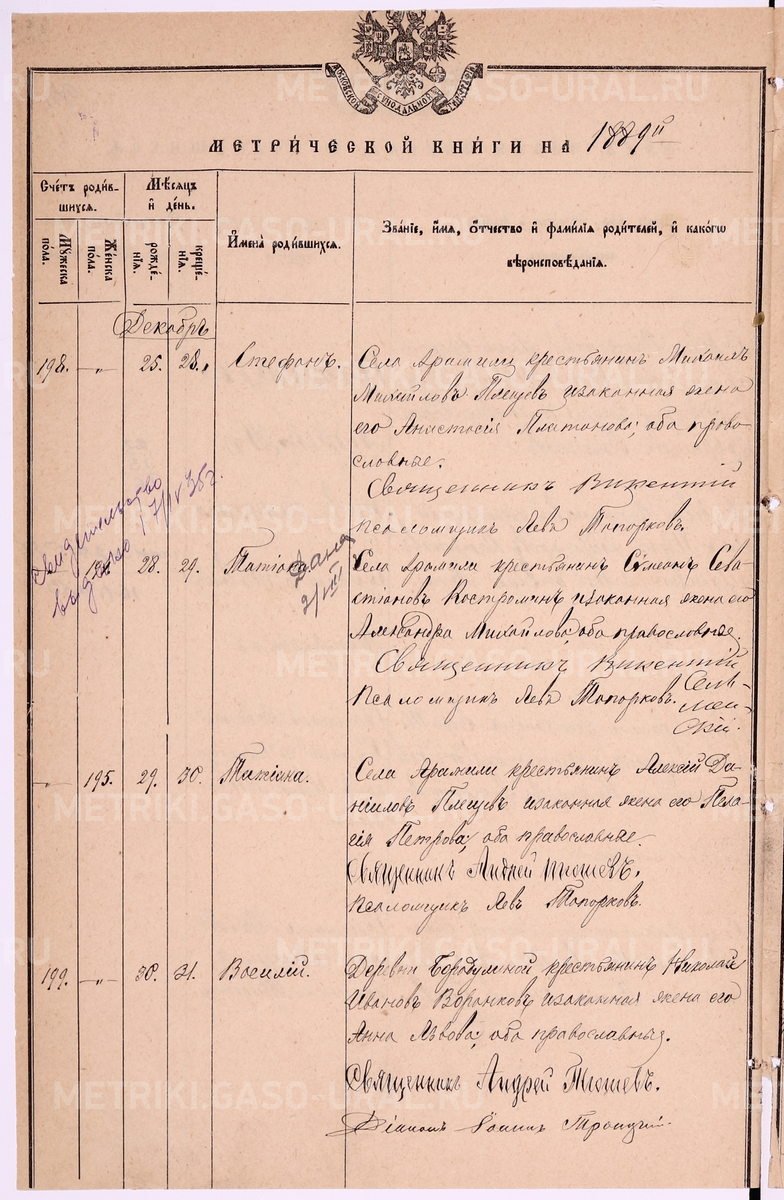 МОСКОВСКОЙ СѴНОДАЛЬНОЙ
МЕТРИ́ЧЕСКОЙ КНИ́ГИ НА 1889й
Сче́тъ роди́в-
шихся.
Мѹ́жеска
по́ла.
Же́нска
по́ла.
Мѣ́сяцъ
и҆ де́нь.
рожде́-
нїѧ.
креще́-
нїѧ.
И҆мена̀ роди́вшихся.
Зва́нїе, и҆́мѧ, о҆́тчество и҆ фами́лїѧ роди́телей, и҆ какогѡ
вѣроисповѣ́данїѧ.
Декабрь
198. -"- 25. 28. Стефанъ. Села Арамили крестьянинъ Михаилъ
Михайловъ Плещевъ и законная жена
его Анастасія Платонова; оба право-
славные.
Священникъ Викентій
Псаломщикъ Левъ Топорковъ.
Свидетельство
выдано 17/IV 35 г.
Дана
2/VIII
194. 28. 29. Татіана Села Арамили крестьянинъ Сѵмеонъ Сева-
стіановъ Костроминъ и законная жена его
Александра Михайлова; оба православные.
Священникъ Викентій
Псаломщикъ Левъ Топорковъ. Сель-
мен-
скій.
-"- 195. 29. 30. Татіана. Села Арамили крестьянинъ Алексій Да-
ніиловъ Плещевъ и законная жена его Пела-
гія Петрова; оба православные.
Священникъ Андрей Тюшевъ.
Псаломщикъ Левъ Топорковъ.
199. -"- 30. 31. Василій. Деревни Бородулиной крестьянинъ Николай
Ивановъ Воронковъ и законная жена его
Анна Львова; оба православные.
Священникъ Андрей Тюшевъ.
Діаконъ Іоаннъ Троицкій.
METRIKI.GASO-URAL.RU